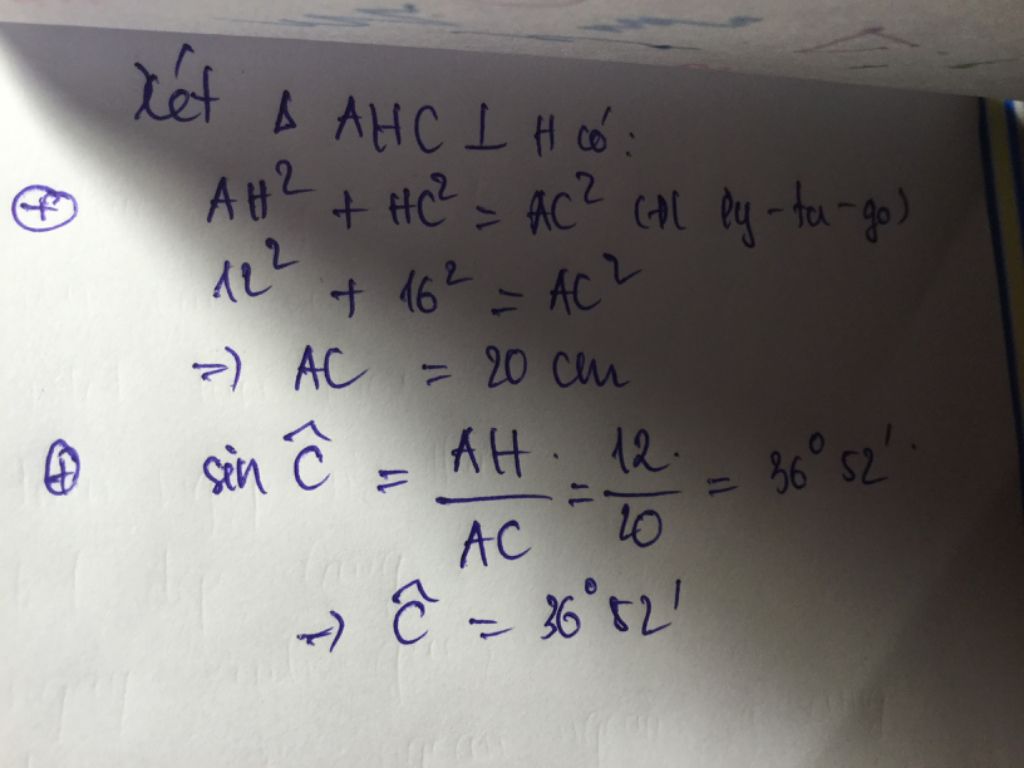 Xét Δ AHC ⊥ H có:
⊕ AH² + HC² = AC² (đl Py-ta-go)
12² + 16² = AC²
=) AC = 20 cm
⊕ sin Ĉ = AH/AC = 12/20 = 36° 52'
=) Ĉ = 36° 52'